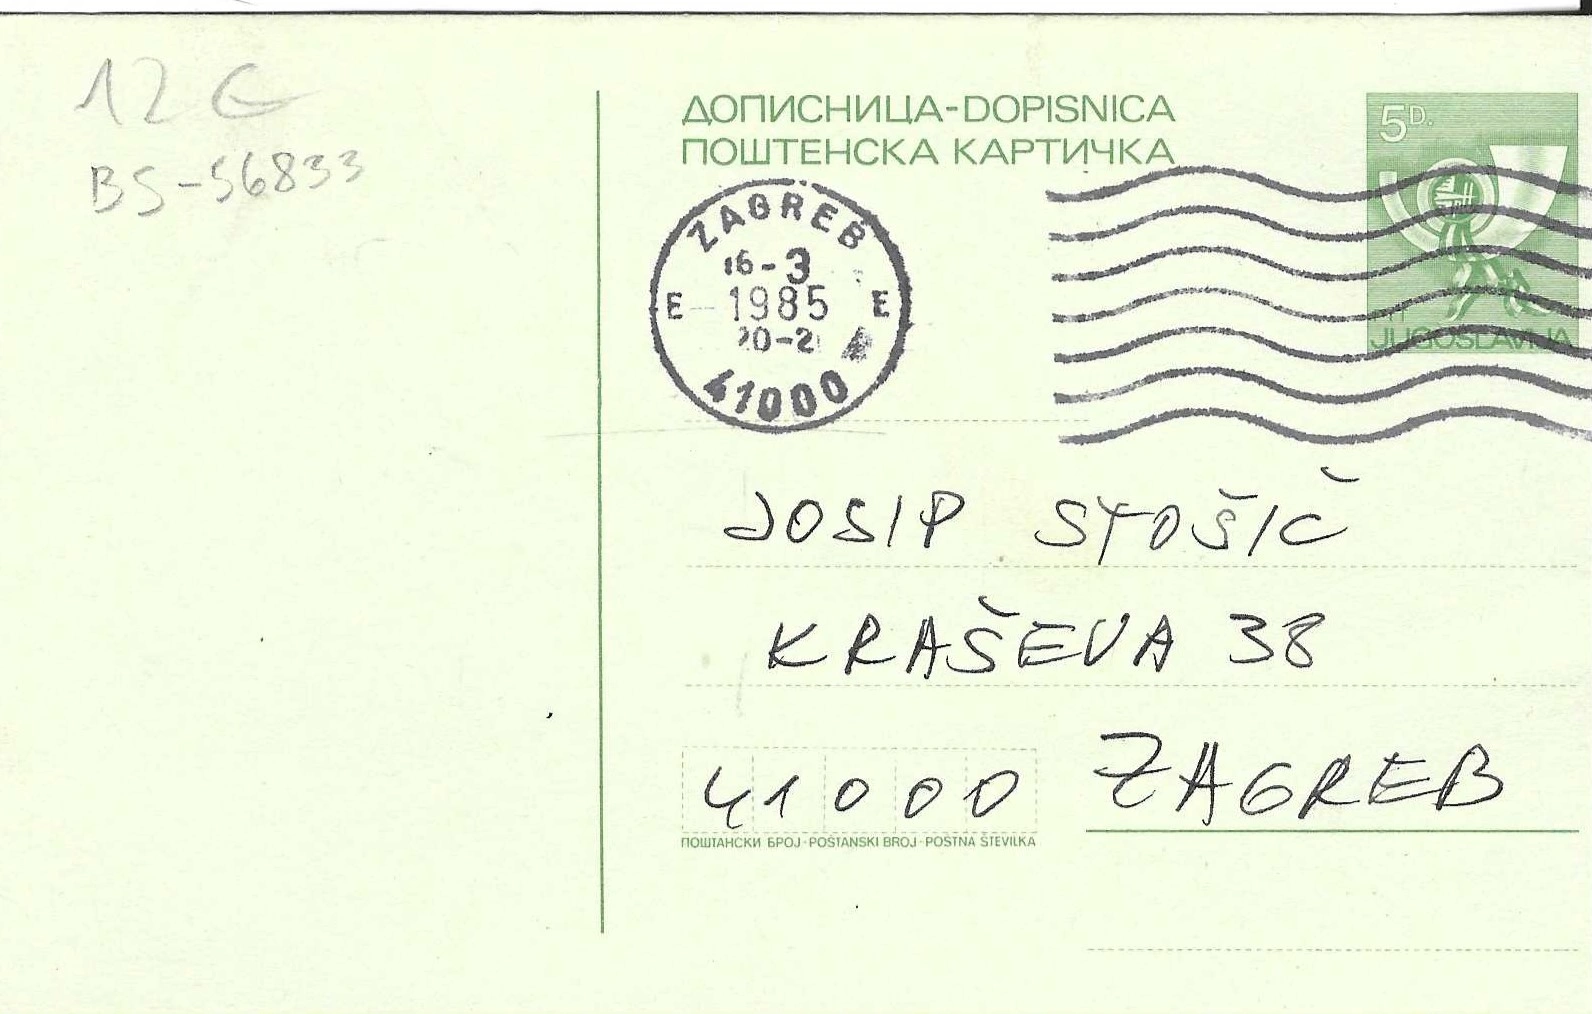 12 €
BS-56833
ДОПИСНИЦА-DOPISNICA
ПОШТЕНСКА КАРТИЧКА
5D.
PTT
JUGOSLAVIJA
ZAGREB
16-3
E 1985 E
20-2
41000
JOSIP STOŠIČ
KRAŠEVA 38
41000 ZAGREB
ПОШТАНСКИ БРОЈ-POŠTANSKI BROJ-POŠTNA ŠTEVILKA